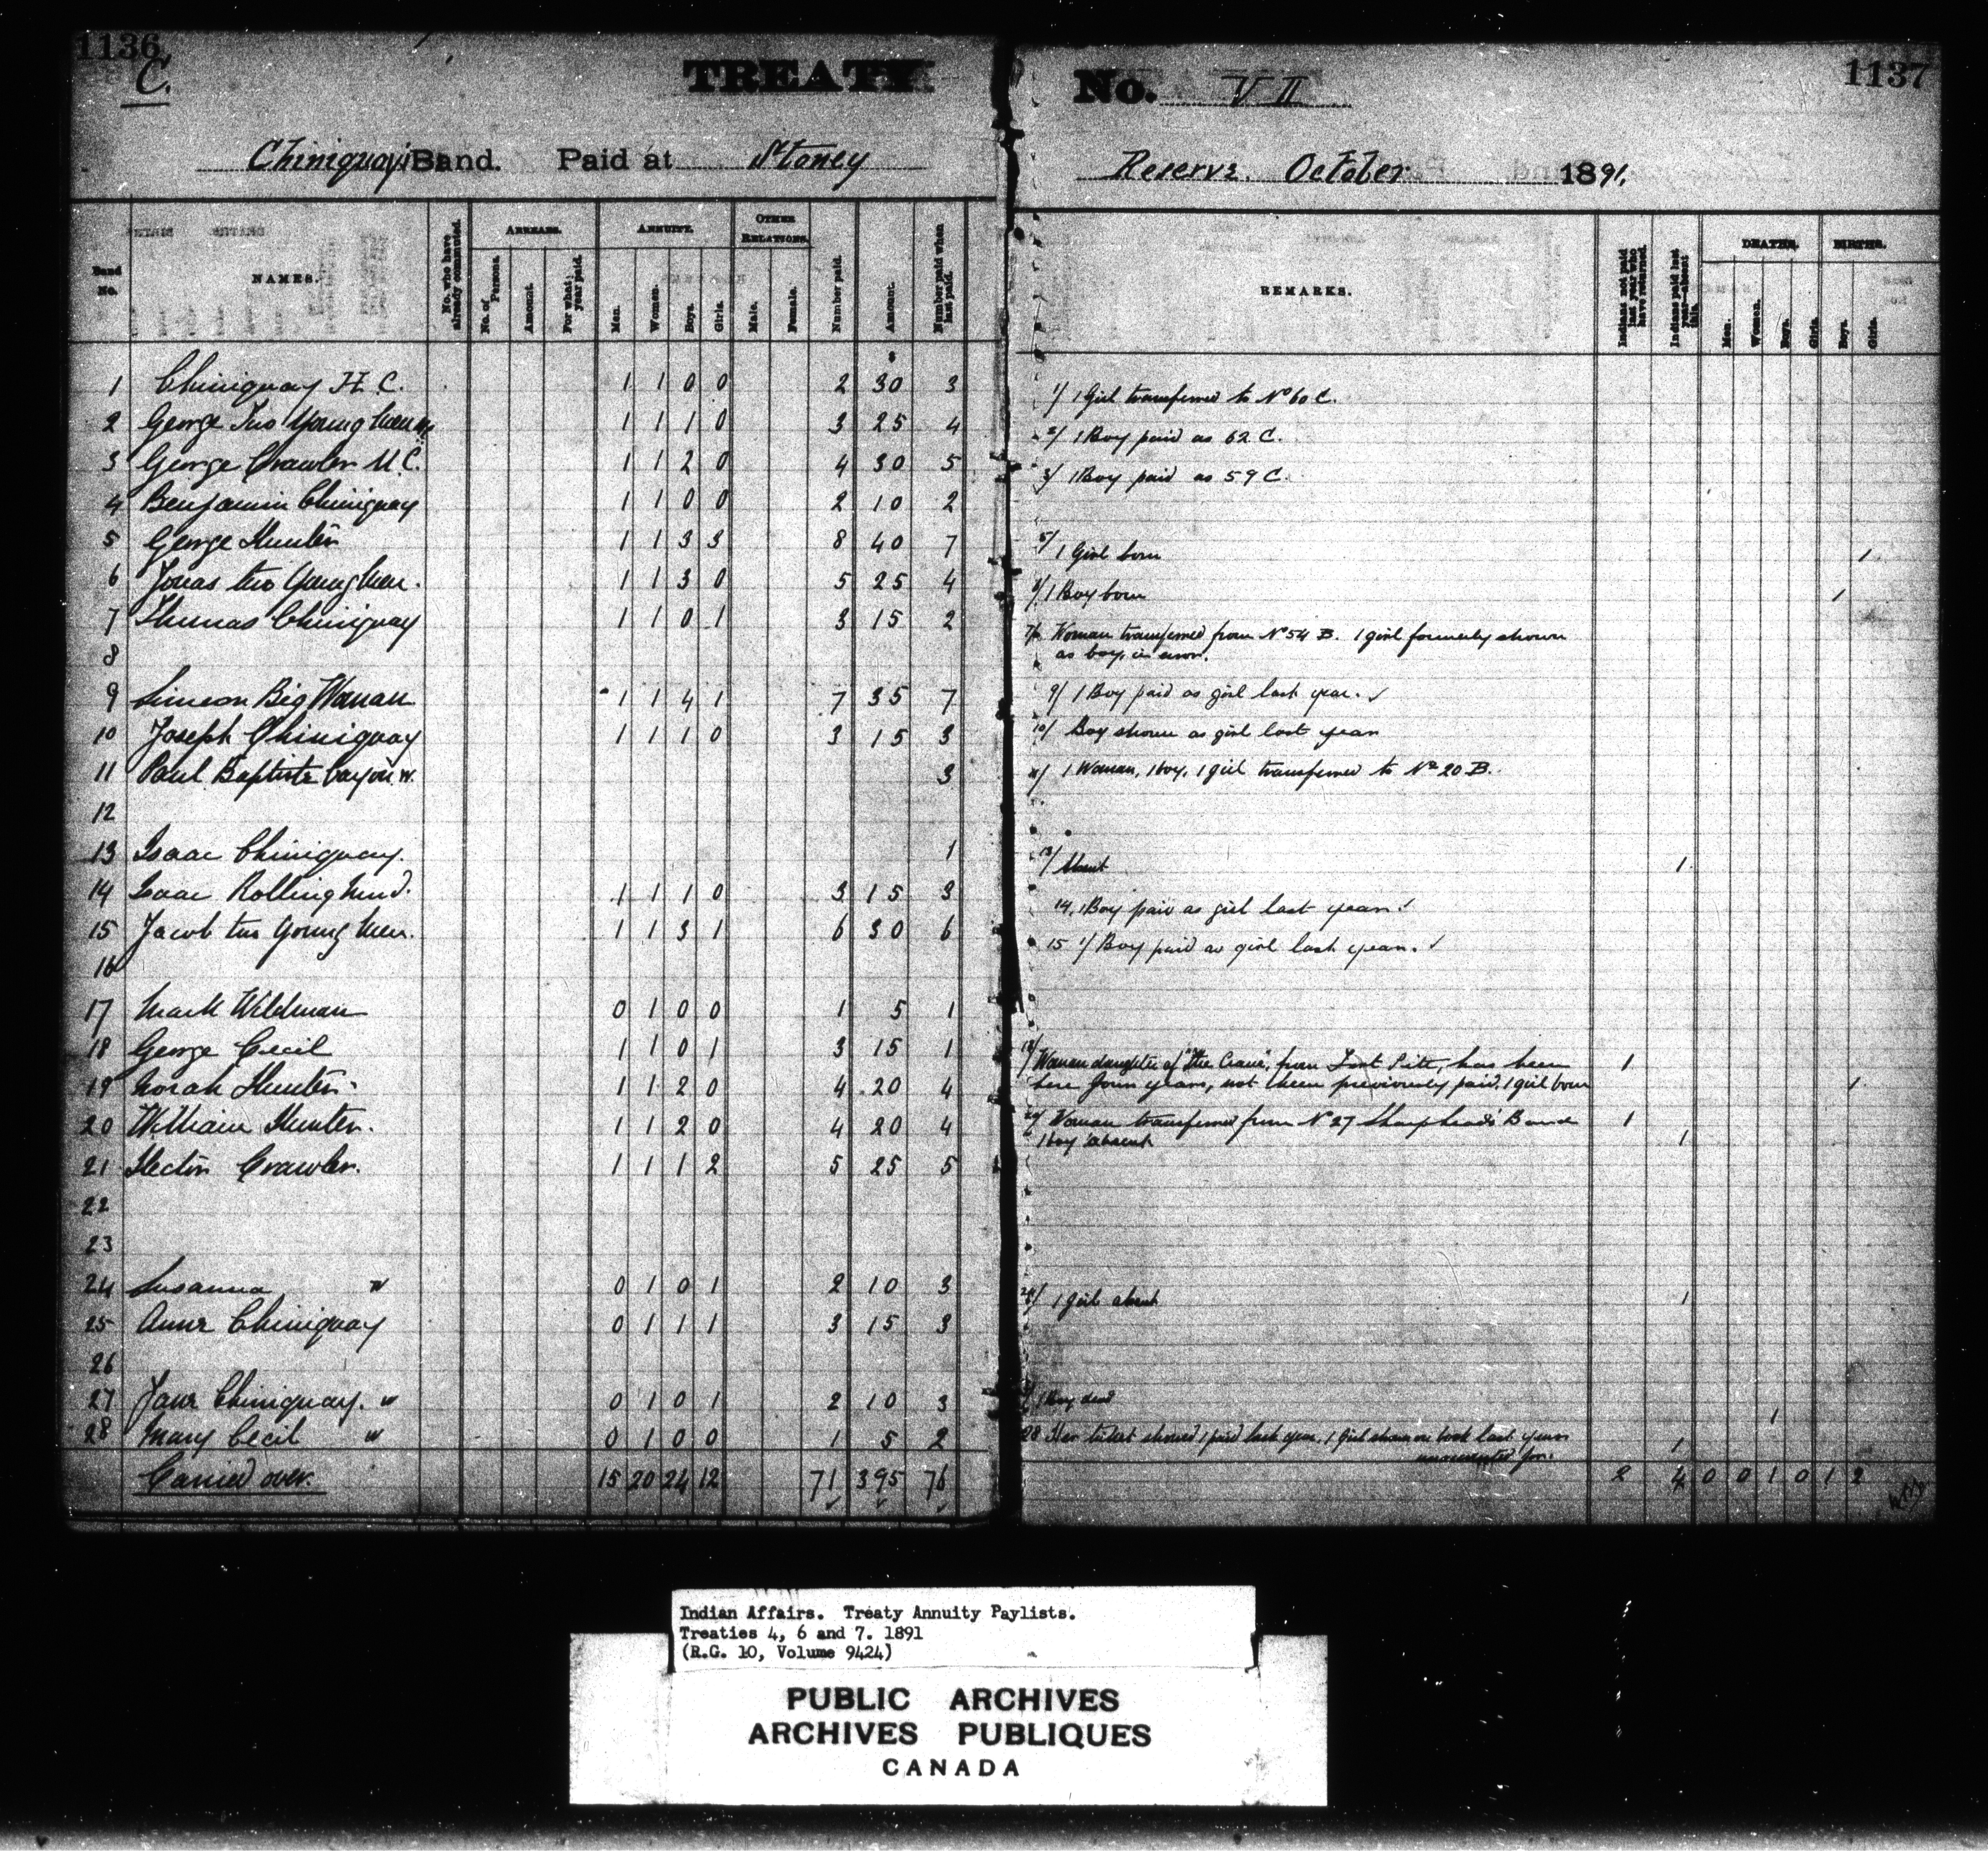 1136
C.
TREATY No. VII
1137
Chiniquay's Band. Paid at Stoney Reserve. October 1891.
Band No.
NAMES.
No. who have already commuted.
ARREARS.
No. of Persons.
Amount.
For what year paid.
ANNUITY.
Men.
Women.
Boys.
Girls.
OTHER RELATIONS.
Male.
Female.
Number paid.
Amount.
Number paid when last paid.
REMARKS.
Indians not paid last year who have returned.
Indians paid last year—absent this.
DEATHS.
Men.
Women.
Boys.
Girls.
BIRTHS.
Boys.
Girls.
$
1 Chiniquay H.C. 1 1 0 0 2 30 3 1/ 1 Girl transferred to No 60 C.
2 George Two Young Men 1 1 1 0 3 25 4 2/ 1 Boy paid as 62 C.
3 George Crawler M.C. 1 1 2 0 4 30 5 3/ 1 Boy paid as 59 C.
4 Benjamin Chiniquay 1 1 0 0 2 10 2
5 George Hunter 1 1 3 3 8 40 7 5/ 1 Girl born 1
6 Jonas two Young Men. 1 1 3 0 5 25 4 6/ 1 Boy born 1
7 Thomas Chiniquay 1 1 0 1 3 15 2 7/ Woman transferred from No 54 B. 1 girl formerly shown
8 as boy, in error.
9 Simeon Big Woman 1 1 4 1 7 35 7 9/ 1 Boy paid as girl last year. ✓
10 Joseph Chiniquay 1 1 1 0 3 15 3 10/ Boy shown as girl last year
11 Paul Baptiste W. 3 11/ 1 Woman, 1 boy, 1 girl transferred to No 20 B.
12
13 Isaac Chiniquay. 1 13/ Absent 1
14 Isaac Rollingmud. 1 1 1 0 3 15 3 14, 1 Boy paid as girl last year ✓
15 Jacob two Young Men. 1 1 3 1 6 30 6 15 1/ Boy paid as girl last year. ✓
16
17 Mark Wildman 0 1 0 0 1 5 1
18 George Cecil 1 1 0 1 3 15 1 18/ Woman daughter of "The Crane", from Fort Pitt, has been 1
19 Norah Hunter. 1 1 2 0 4 20 4 here four years, not been previously paid. 1 girl born 1
20 William Hunter. 1 1 2 0 4 20 4 20/ Woman transferred from No 27 Sharphead's Band 1
1 boy absent 1
21 Hector Crawler. 1 1 1 2 5 25 5
22
23
24 Susanna W 0 1 0 1 2 10 3 24/ 1 girl absent 1
25 Anne Chiniquay 0 1 1 1 3 15 3
26
27 Jane Chiniquay. W 0 1 0 1 2 10 3 1 Boy dead 1
28 Mary Cecil W 0 1 0 0 1 5 2 28 Her ticket showed 1 paid last year, 1 Girl shown on book last year 1
unaccounted for.
Carried over. 15 20 24 12 71 395 76 2 4 0 0 1 0 1 2
Indian Affairs. Treaty Annuity Paylists.
Treaties 4, 6 and 7. 1891
(R.G. 10, Volume 9424)
PUBLIC ARCHIVES
ARCHIVES PUBLIQUES
CANADA